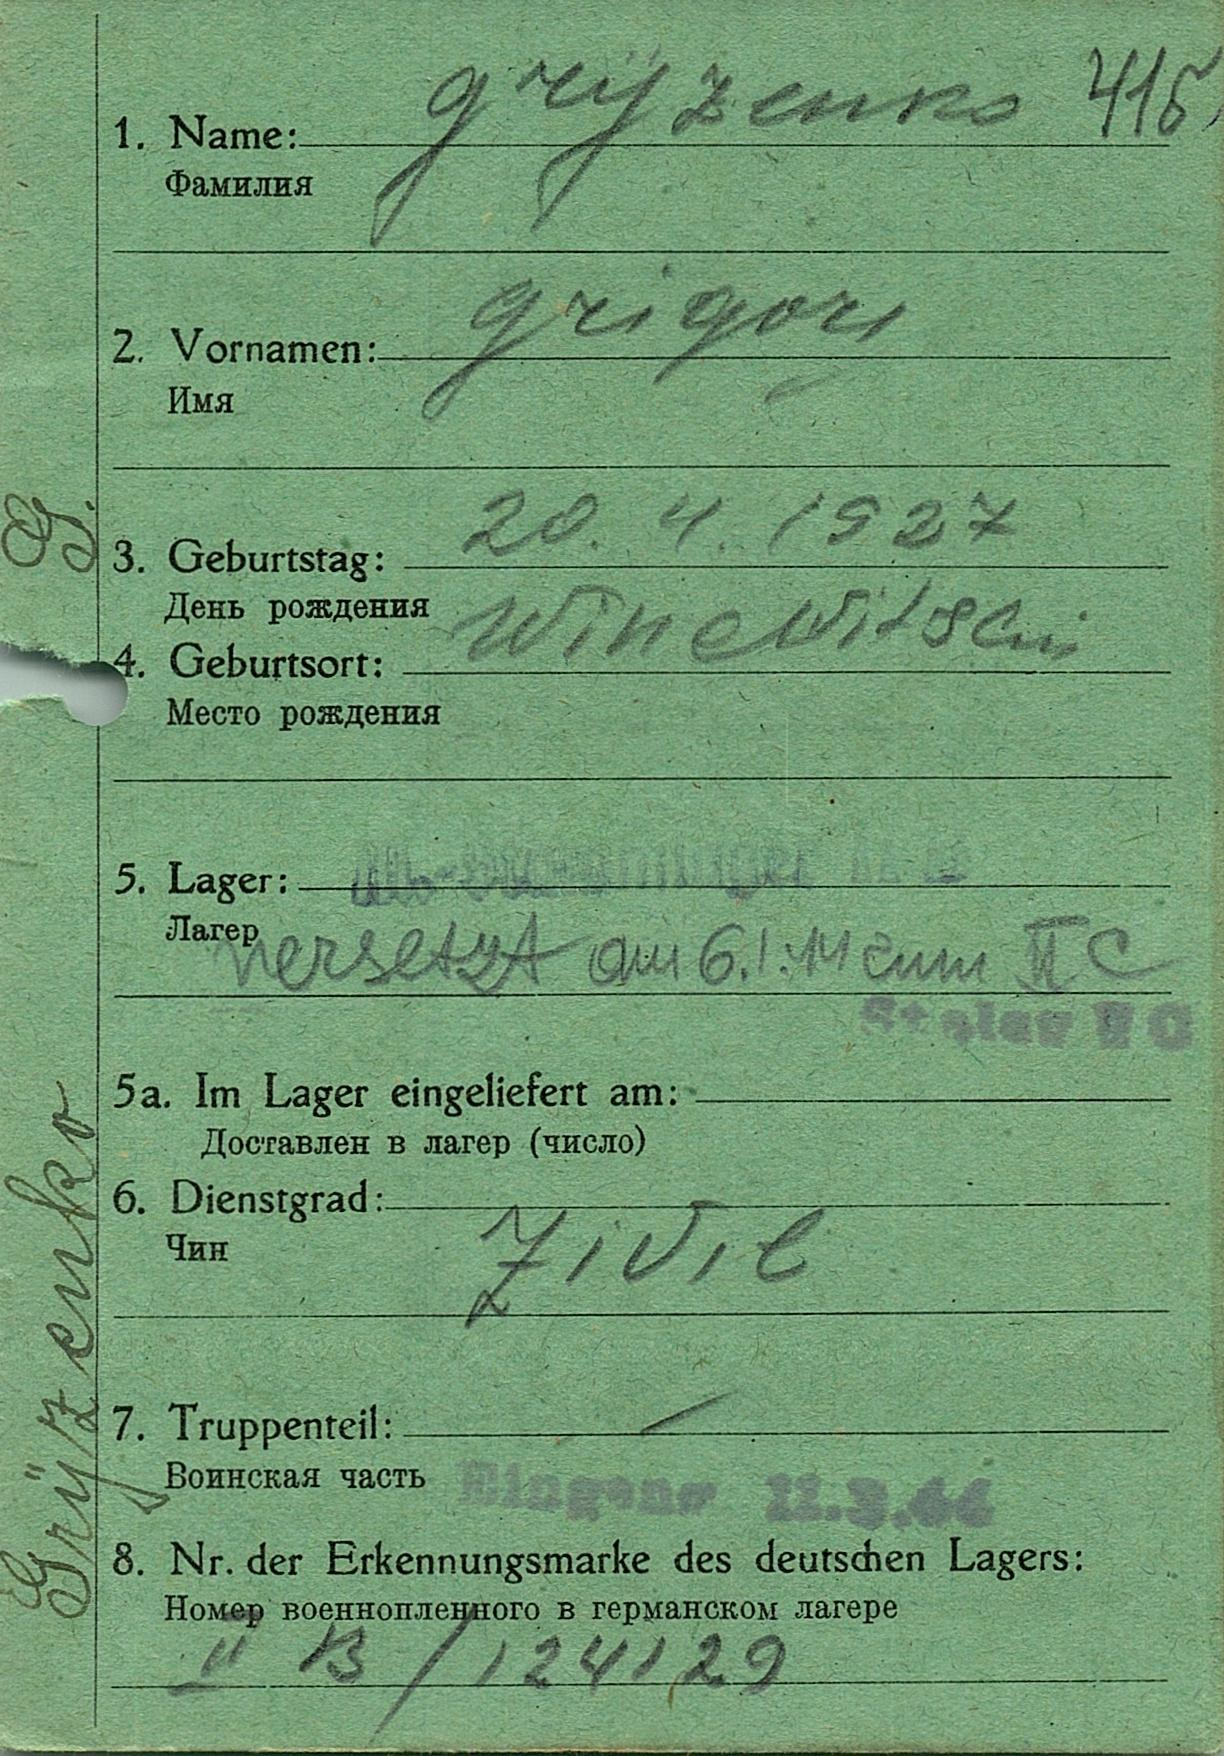 415
1. Name: Grÿzenko
Фамилия
2. Vornamen: Grigori
Имя
3. Geburtstag: 20. 4. 1927
День рождения
4. Geburtsort:
Место рождения
5. Lager:
Лагерь
versetzt am 6.1.44 zum II C
Stalag II C
5a. Im Lager eingeliefert am:
Доставлен в лагер (число)
6. Dienstgrad:
Чин
Zivil
7. Truppenteil: —
Воинская часть
Eingang 11.3.44
8. Nr. der Erkennungsmarke des deutschen Lagers:
Номер военнопленного в германском лагере
II B / 124129
Grÿzenko G.